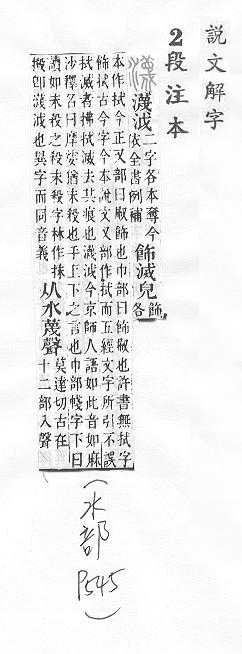 說文解字
2段注本
瀎 瀎泧 二字各本奪今
依全書例補 飾滅皃 飾各
本作拭今正又部曰㕞飾也巾部曰飾㕞也許書無拭字
飾拭古今字今本說文又部作拭而五經文字所引不誤
拭滅者拂拭滅去其痕也瀎泧今京師人語如此音如麻
沙釋名曰摩娑猶末殺也手上下之言也巾部帴字下曰
讀如末殺之殺末殺字林作抹
摋卽瀎泧也異字而同音義
从水蔑聲 莫達切古在
十二部入聲
(水部 P545)